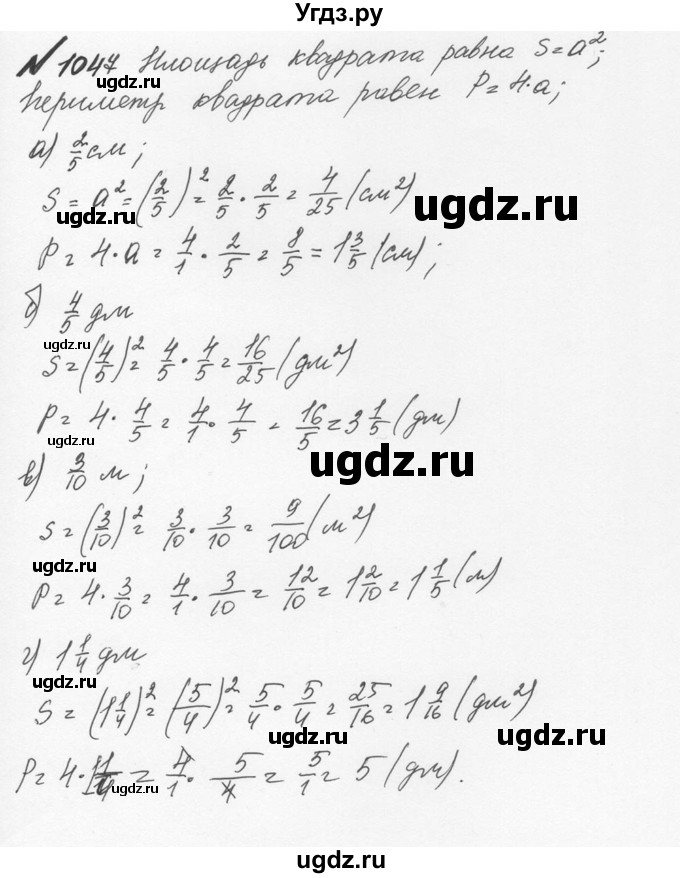 Угдз.ру
№ 1047 Площадь квадрата равна S = a²;
периметр квадрата равен P = 4·a;
а) 2/5 см;
S = a² = (2/5)² = 2/5 · 2/5 = 4/25 (см²)
ugdz.ru
ugdz.ru
P = 4·a = 4/1 · 2/5 = 8/5 = 1 3/5 (см);
б) 4/5 дм
ugdz.ru
S = (4/5)² = 4/5 · 4/5 = 16/25 (дм²)
P = 4 · 4/5 = 4/1 · 4/5 = 16/5 = 3 1/5 (дм)
ugdz.ru
ugdz.ru
в) 3/10 м;
S = (3/10)² = 3/10 · 3/10 = 9/100 (м²)
ugdz.ru
P = 4 · 3/10 = 4/1 · 3/10 = 12/10 = 1 2/10 = 1 1/5 (м)
г) 1 1/4 дм
ugdz.ru
S = (1 1/4)² = (5/4)² = 5/4 · 5/4 = 25/16 = 1 9/16 (дм²)
ugdz.ru
ugdz.ru
P = 4 · 1 1/4 = 4/1 · 5/4 = 5/1 = 5 (дм).
ugdz.ru
ugdz.ru